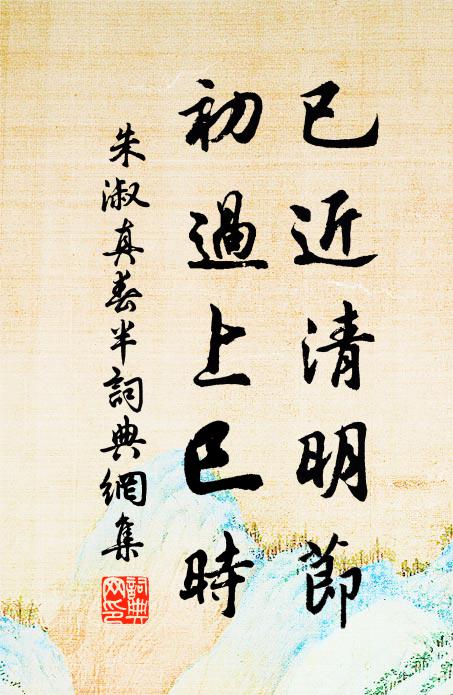 已近清明節
初過上巳時
朱淑真春半詞典網集
詞典网印